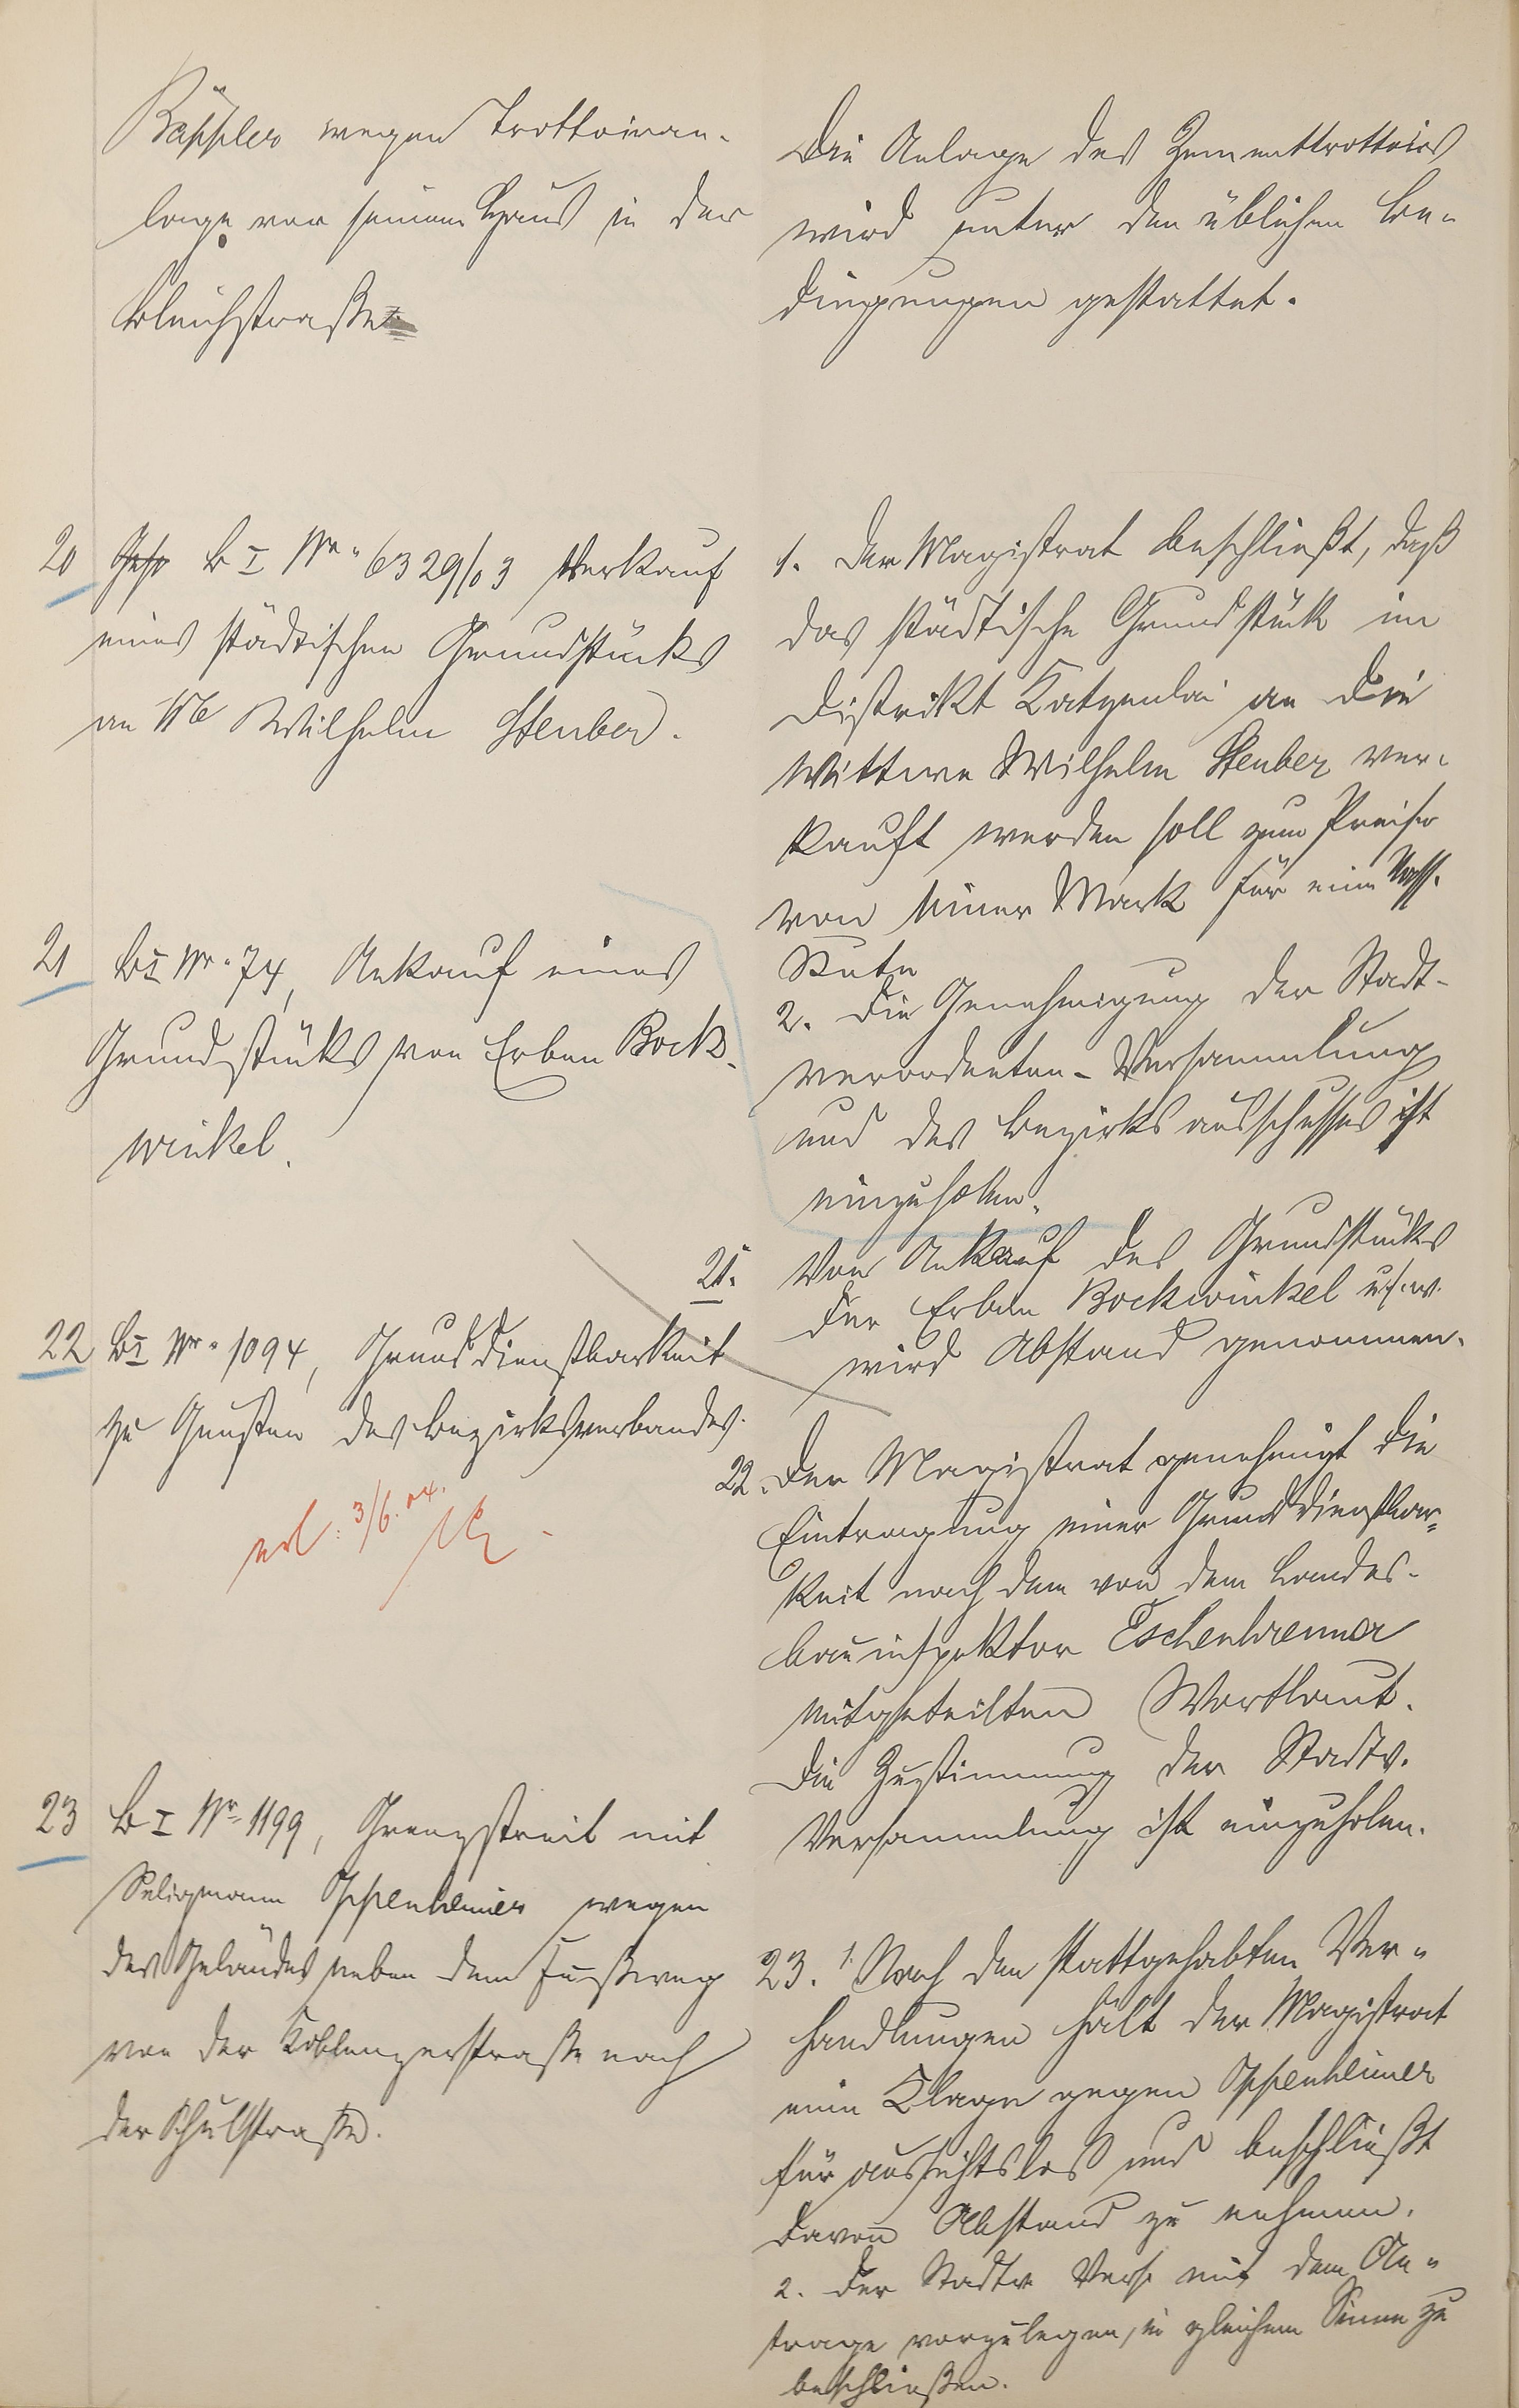 Käppler wegen Trottoiran-
lage vor seinem Haus in der
Bleichstraße
Die Anlage des Zementtrottoirs
wird unter den üblichen Be-
dingungen gestattet.
20 B I Nr. 6329/03 Verkauf
eines städtischen Grundstücks
an Ww Wilhelm Steuber.
1. Der Magistrat beschließt, daß
das städtische Grundstück im
Distrikt Katzenlai an die
Wittwe Wilhelm Steuber ver-
kauft werden soll zum Preise
von einer Mark für eine
Rute
2. Die Genehmigung der Stadt-
verordneten-Versammlung
und des Bezirksausschusses ist
einzuholen.
21 B I Nr. 74, Ankauf eines
Grundstücks von Erben Bock-
winkel.
21. Von Ankauf des Grundstücks
der Erben Bockwinkel u.s.w.
wird Abstand genommen.
22 B I Nr. 1094, Grunddienstbarkeit
zu Gunsten des Bezirksverbandes.
erl: 3/6.04.
22. Der Magistrat genehmigt die
Eintragung einer Grunddienstbar-
keit nach dem von dem Landes-
bauinspektor Eschenbrenner
mitgeteilten Wortlaut.
Die Zustimmung der Stadtv.
Versammlung ist einzuholen.
23 B I Nr. 1199, Grenzstreit mit
Seligmann Oppenheimer wegen
des Geländes neben dem Fußweg
von der Koblenzerstraße nach
der Schulstraße.
23. 1. Nach den stattgehabten Ver-
handlungen hält der Magistrat
eine Klage gegen Oppenheimer
für aussichtslos und beschließt
davon Abstand zu nehmen.
2. Der Stadtv Vers mit dem An-
trage vorzulegen, in gleichem Sinne zu
beschließen.